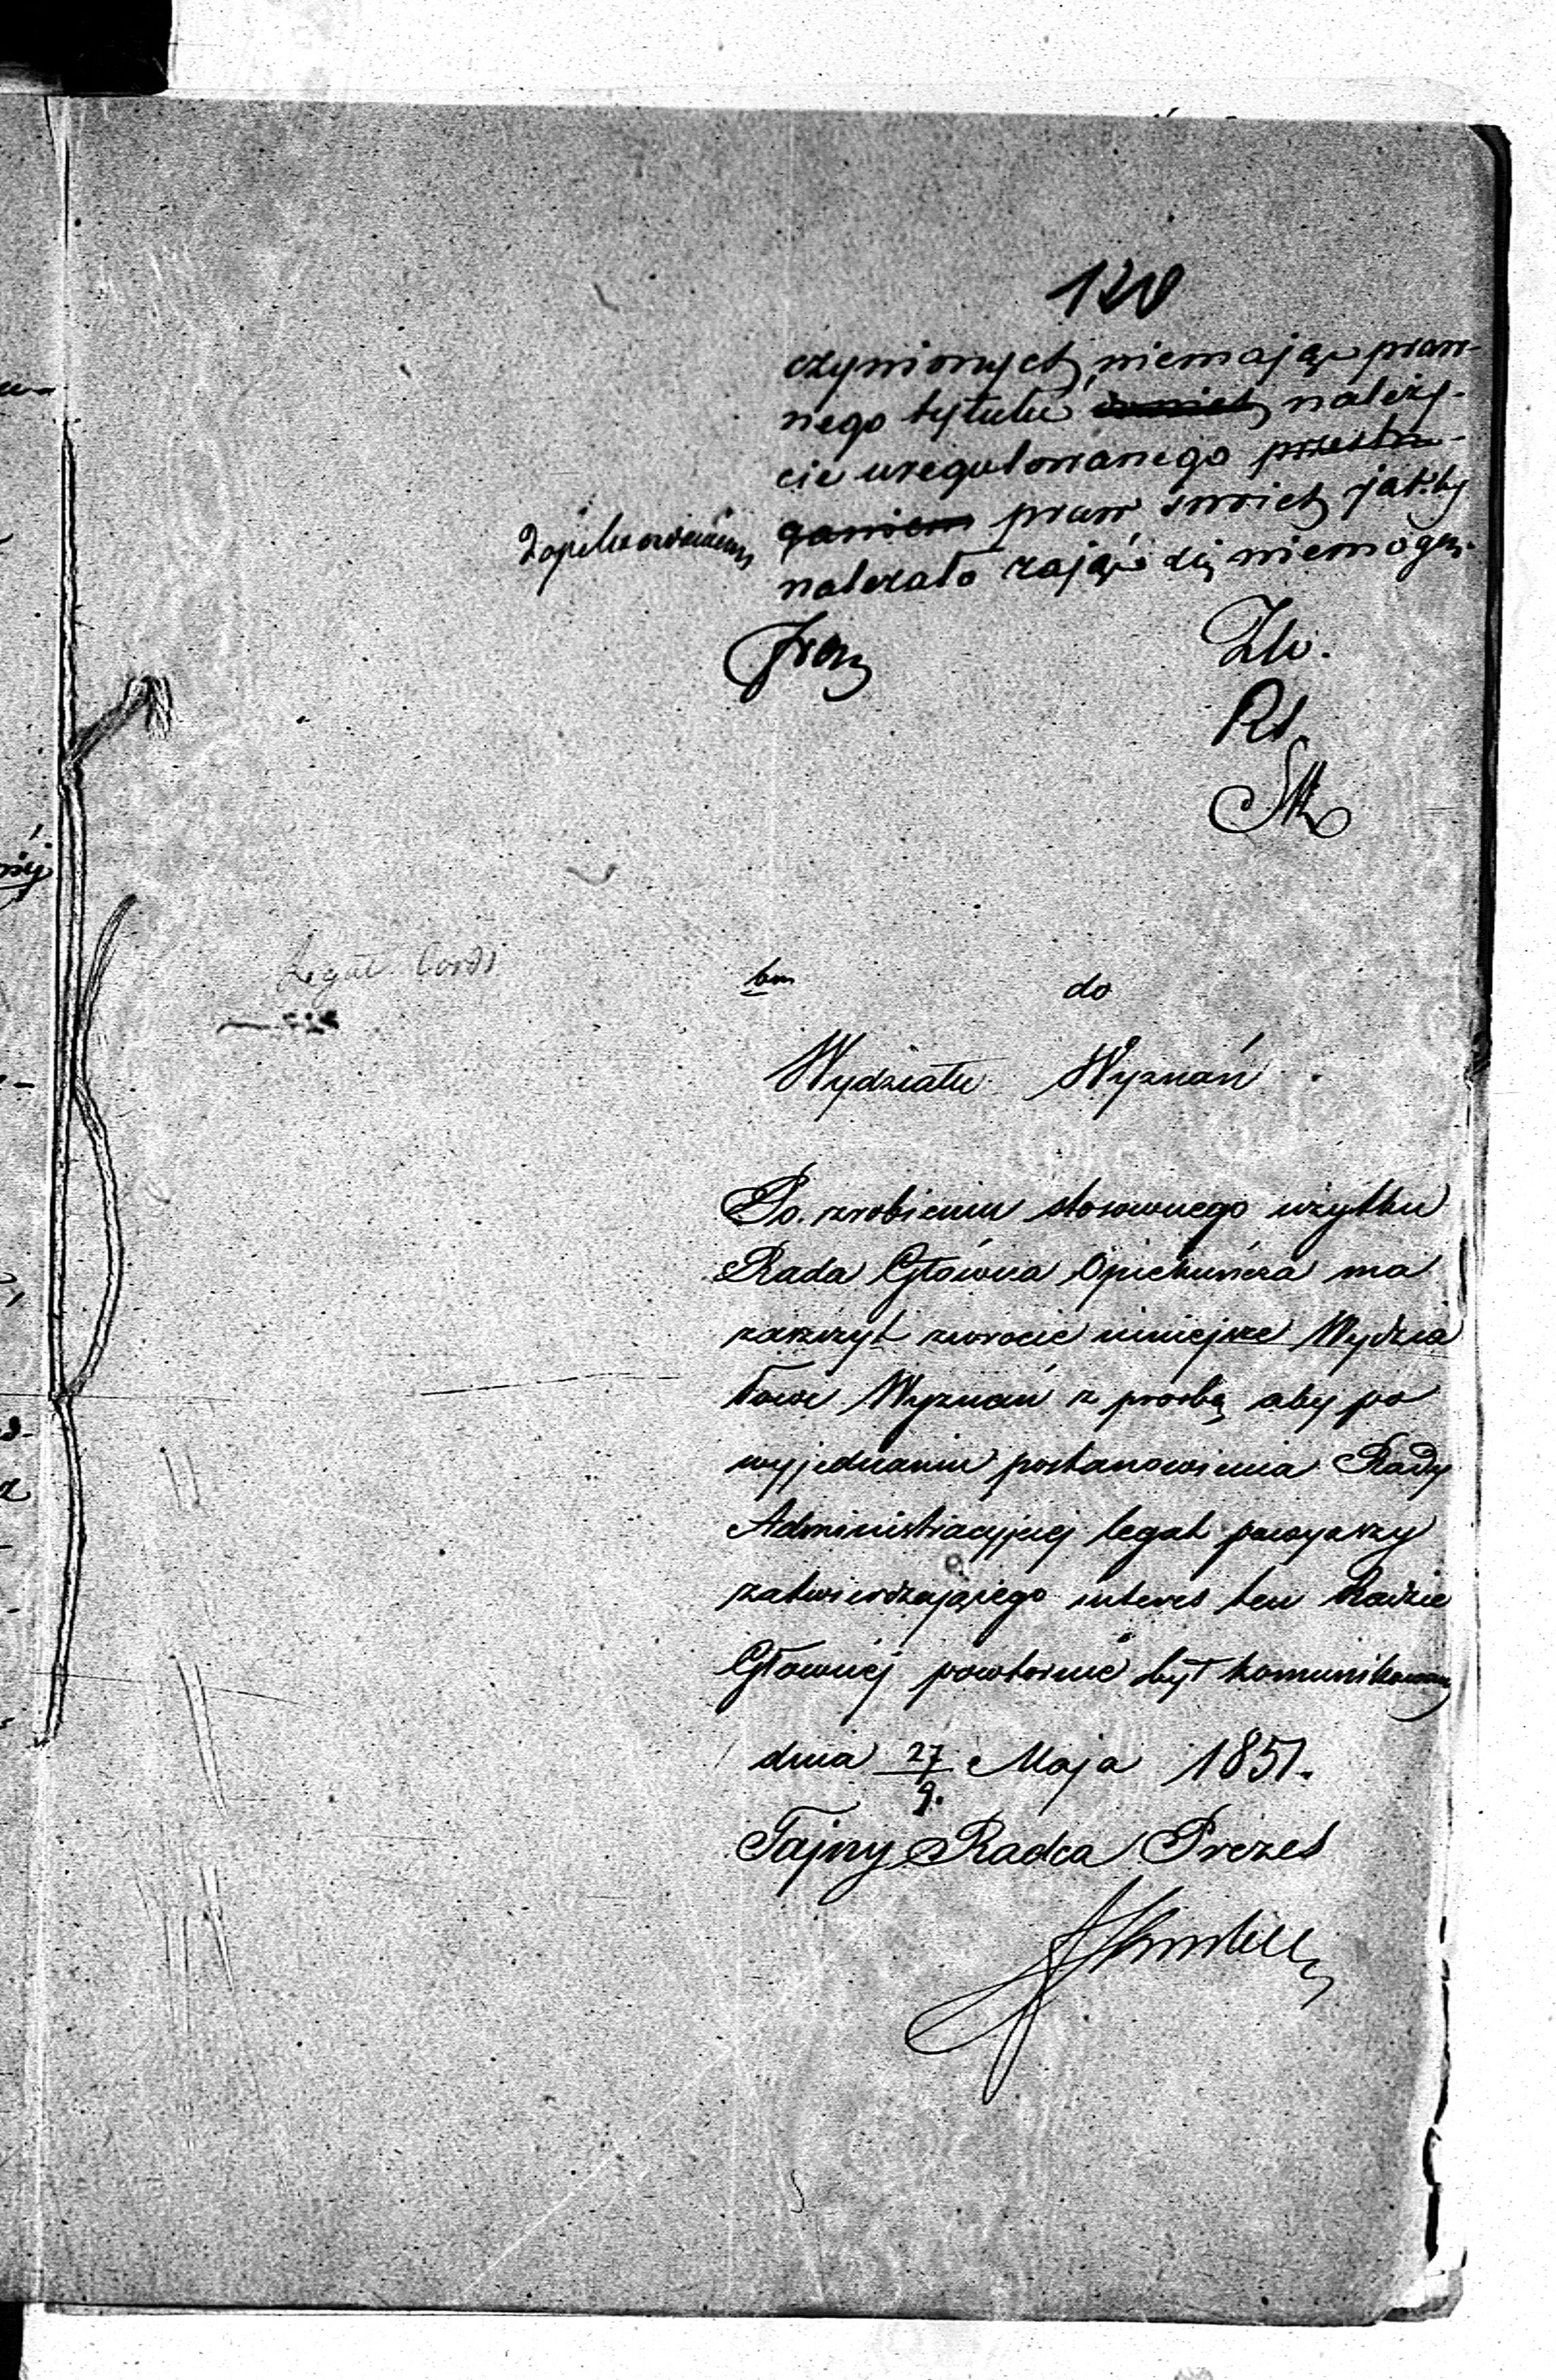 120
czynionych, niemając praw-
nego tytułu należy-
cie uregulowanego przestrze-
ganiem praw swoich jak by
dopilnowaniem
należało zająć się niemogą.
Zw.
Rd.
do
Wydziału Wyznań
Po zrobieniu stosownego użytku
Rada Główna Opiekuńcza ma
zaszczyt zwrócić niniejsze Wydzia
łowi Wyznań z prośbą aby po
wyjednaniu postanowienia Rady
Administracyjnej legat powyższy
zatwierdzającego interes ten Radzie
Głównej powtórnie był komunikowany
dnia 27/9. Maja 1851.
Tajny Radca Prezes